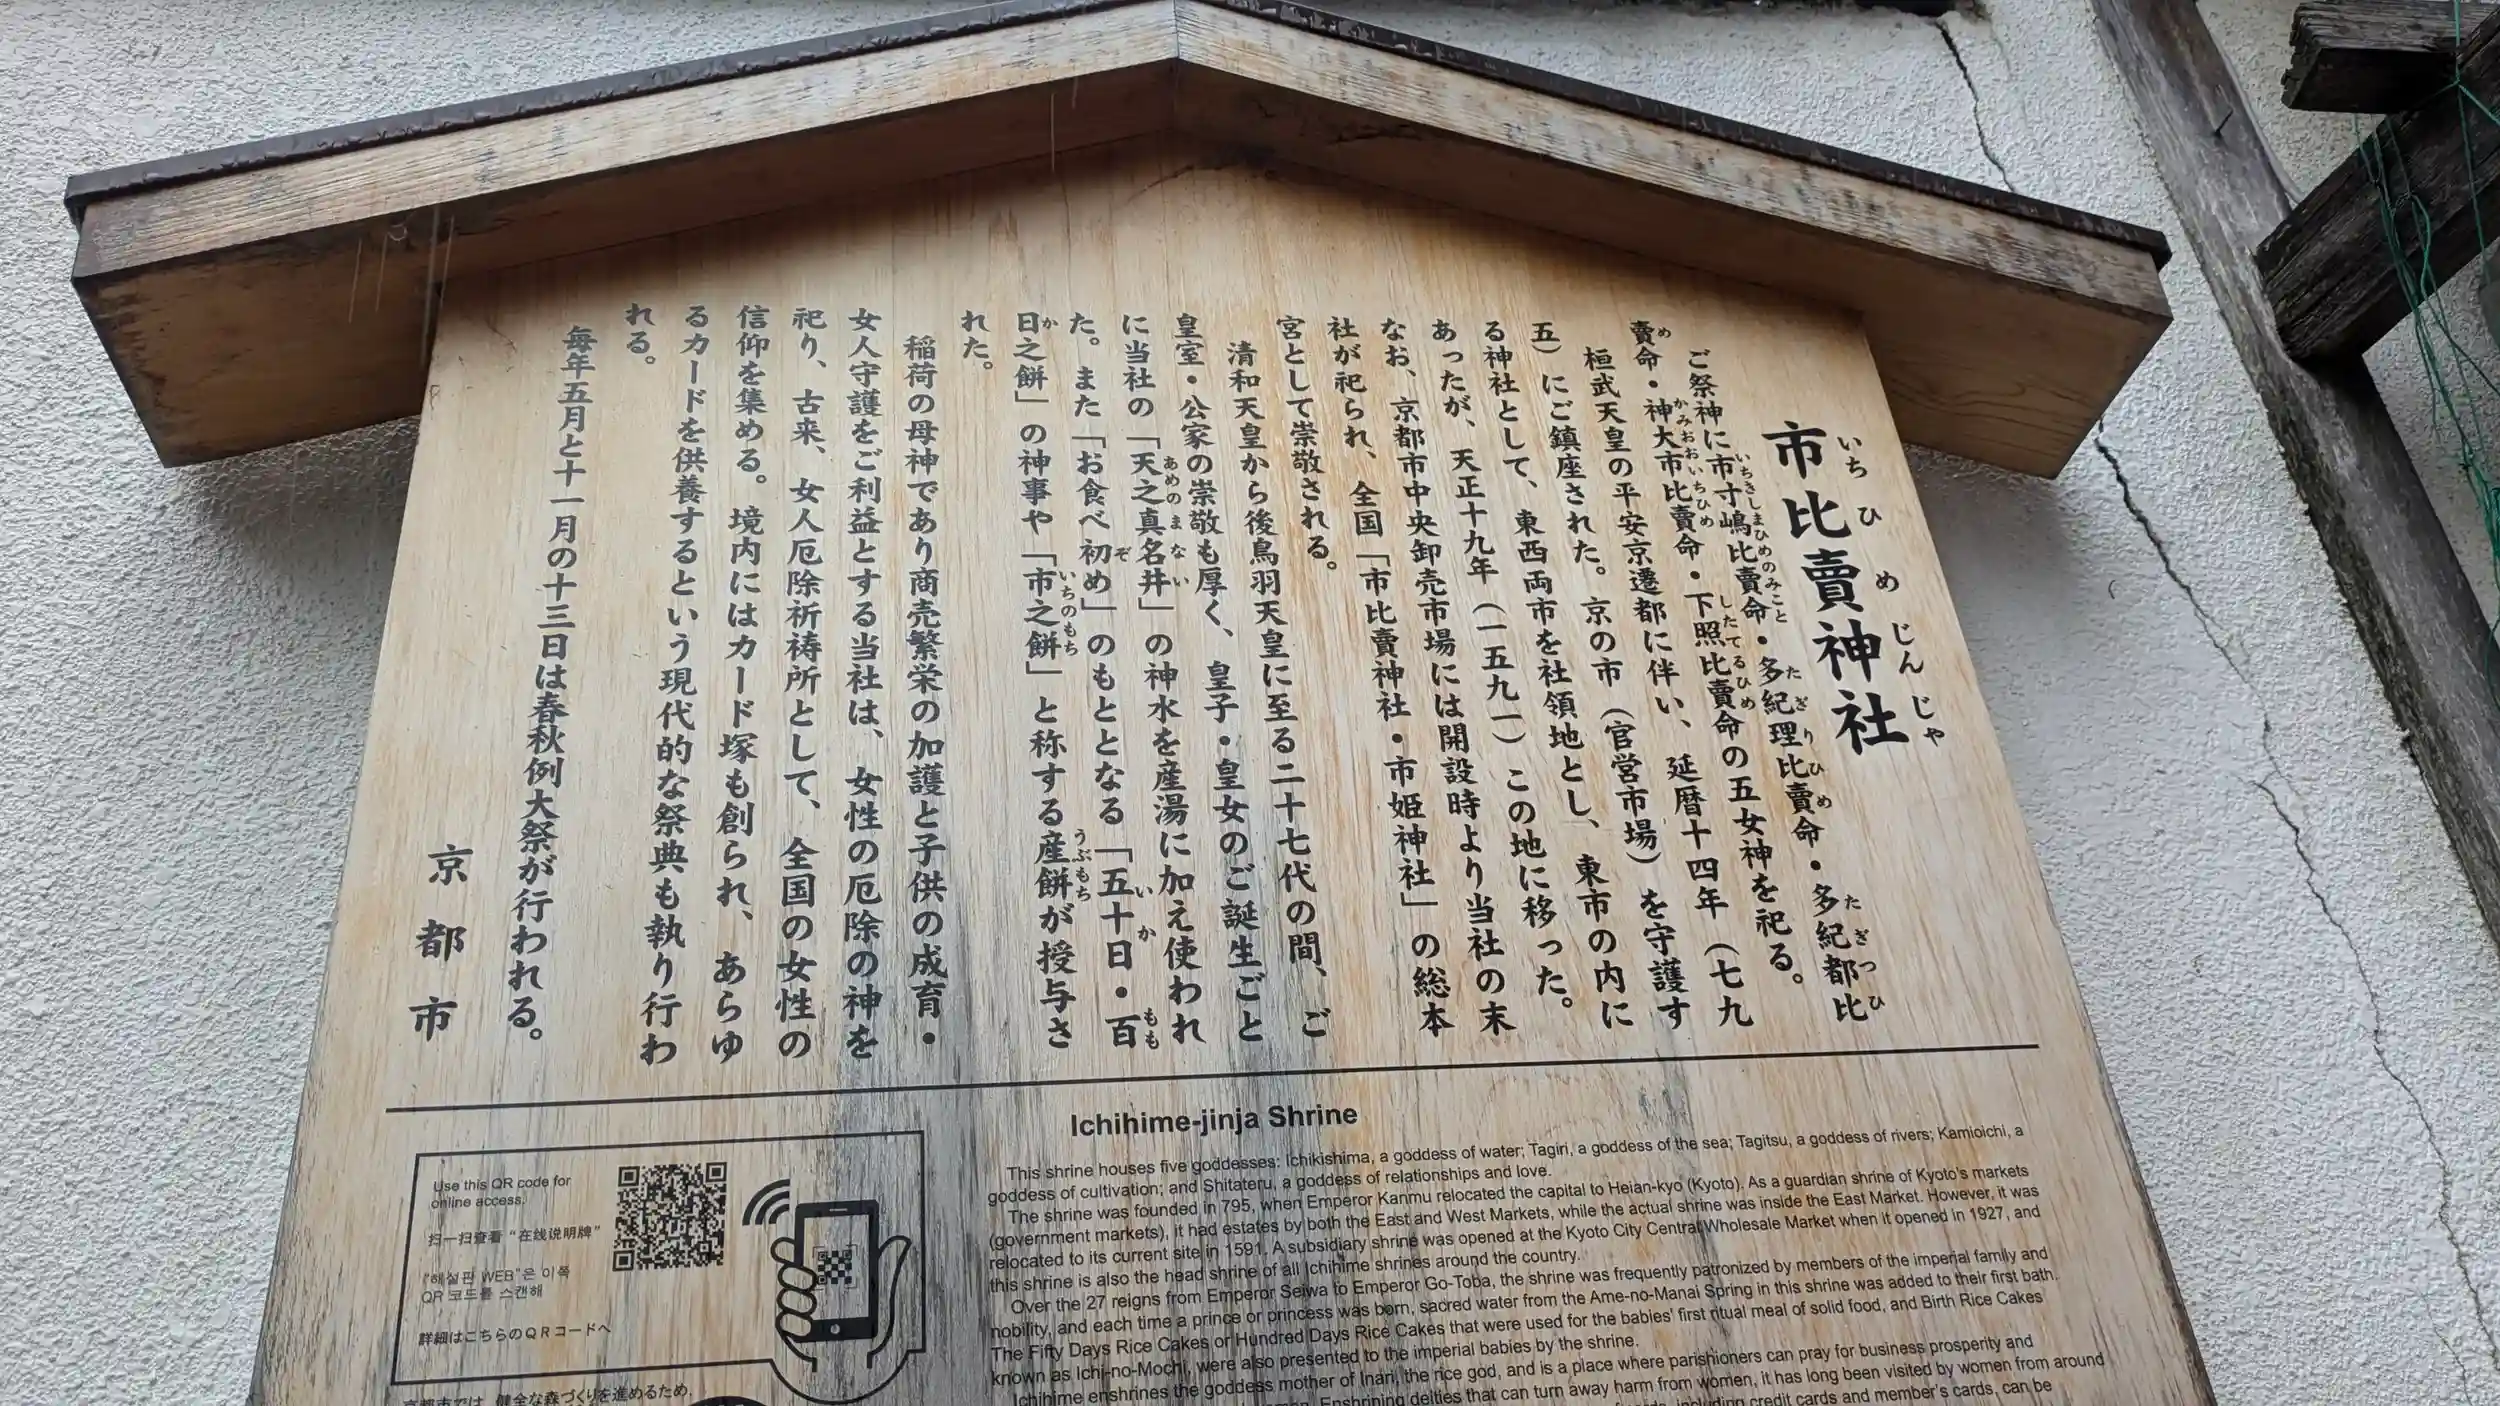 市比賣神社
いちひめじんじゃ
ご祭神に市寸嶋比賣命・多紀理比賣命・多紀都比
いちきしまひめのみこと たぎりひめ たぎつひ
賣命・神大市比賣命・下照比賣命の五女神を祀る。
め かみおおいちひめ したてるひめ
桓武天皇の平安京遷都に伴い、延暦十四年（七九
五）にご鎮座された。京の市（官営市場）を守護す
る神社として、東西両市を社領地とし、東市の内に
あったが、天正十九年（一五九一）この地に移った。
なお、京都市中央卸売市場には開設時より当社の末
社が祀られ、全国「市比賣神社・市姫神社」の総本
宮として崇敬される。
清和天皇から後鳥羽天皇に至る二十七代の間、ご
皇室・公家の崇敬も厚く、皇子・皇女のご誕生ごと
に当社の「天之真名井」の神水を産湯に加え使われ
あめのまない
た。また「お食べ初め」のもととなる「五十日・百
ぞ いか もも
日之餅」の神事や「市之餅」と称する産餅が授与さ
か いちのもち うぶもち
れた。
稲荷の母神であり商売繁栄の加護と子供の成育・
女人守護をご利益とする当社は、女性の厄除の神を
祀り、古来、女人厄除祈祷所として、全国の女性の
信仰を集める。境内にはカード塚も創られ、あらゆ
るカードを供養するという現代的な祭典も執り行わ
れる。
毎年五月と十一月の十三日は春秋例大祭が行われる。
京都市
Use this QR code for
online access.
扫一扫查看“在线说明牌”
"해설판 WEB"은 이쪽
QR 코드를 스캔해
詳細はこちらのQRコードへ
京都市では、健全な森づくりを進めるため、
Ichihime-jinja Shrine
This shrine houses five goddesses: Ichikishima, a goddess of water; Tagiri, a goddess of the sea; Tagitsu, a goddess of rivers; Kamioichi, a
goddess of cultivation; and Shitateru, a goddess of relationships and love.
The shrine was founded in 795, when Emperor Kanmu relocated the capital to Heian-kyo (Kyoto). As a guardian shrine of Kyoto's markets
(government markets), it had estates by both the East and West Markets, while the actual shrine was inside the East Market. However, it was
relocated to its current site in 1591. A subsidiary shrine was opened at the Kyoto City Central Wholesale Market when it opened in 1927, and
this shrine is also the head shrine of all Ichihime shrines around the country.
Over the 27 reigns from Emperor Seiwa to Emperor Go-Toba, the shrine was frequently patronized by members of the imperial family and
nobility, and each time a prince or princess was born, sacred water from the Ame-no-Manai Spring in this shrine was added to their first bath.
The Fifty Days Rice Cakes or Hundred Days Rice Cakes that were used for the babies' first ritual meal of solid food, and Birth Rice Cakes
known as Ichi-no-Mochi, were also presented to the imperial babies by the shrine.
Ichihime enshrines the goddess mother of Inari, the rice god, and is a place where parishioners can pray for business prosperity and
Enshrining deities that can turn away harm from women, it has long been visited by women from around
including credit cards and member's cards, can be